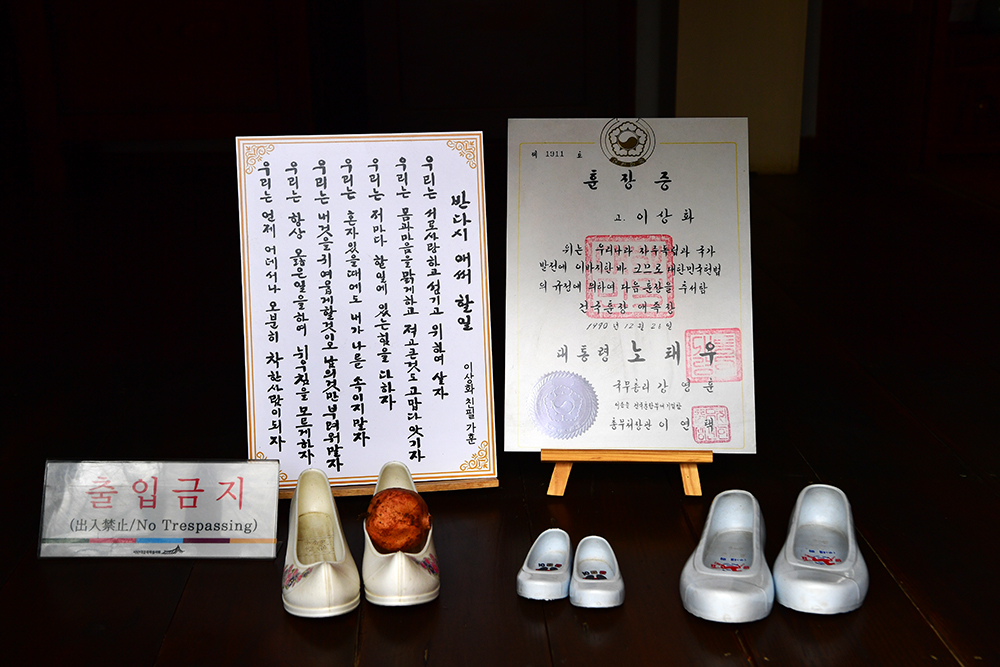 반다시 애써 할일
이상화 친필 가훈
우리는 서로사랑하고 섬기고 위하여 살자
우리는 몸과마음을 맑게하고 적고큰것도 고맙다 앗기자
우리는 저마다 할일에 있는힘을 다하자
우리는 혼자있을때에도 내가 나를 속이지말자
우리는 내것을귀여웁게할것이오 남의것만 부러워말자
우리는 항상 옳은일을하여 뉘우침을 모르게하자
우리는 언제 어데서나 오분히 차한사람이되자
제 1911 호
훈장증
고 이상화
위는 우리나라 자주독립과 국가
발전에 이바지한바 크므로 대한민국헌법
의 규정에 의하여 다음 훈장을 수여함
건국훈장 애족장
1990년 12월 26일
대통령 노태우
국무총리 강영훈
이증을 건국훈장부에기입함
총무처장관 이연택
출입금지
(出入禁止/No Trespassing)